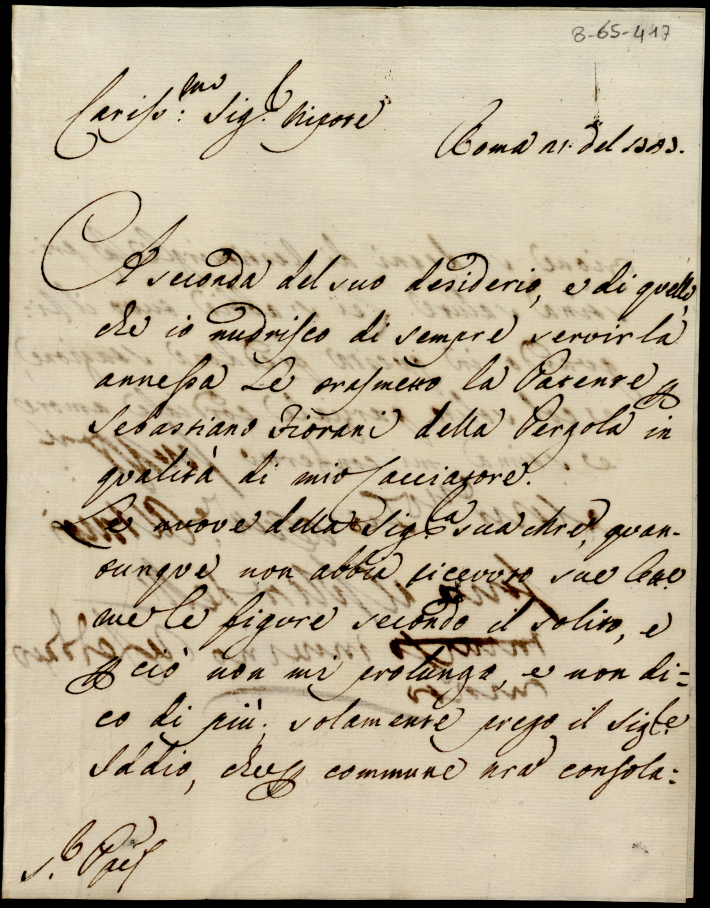 8-65-417
Cariss:mo Sig.r Nipote
Roma 21. del 1383.
A seconda del suo desiderio, e di quello,
che io nudrisco di sempre servirla
annessa Le trasmetto la Patente p
Sebastiano Fiorani della Pergola in
qualità di mio Cacciatore.
Le nuove della Sig.ra sua Mre, quan-
tunque non abbia ricevuto sue Lre.
me le figuro secondo il solito, e
p ciò non mi prolungo, e non di=
co di più; solamente prego il Sig.re
Iddio, che p commune nra consola: